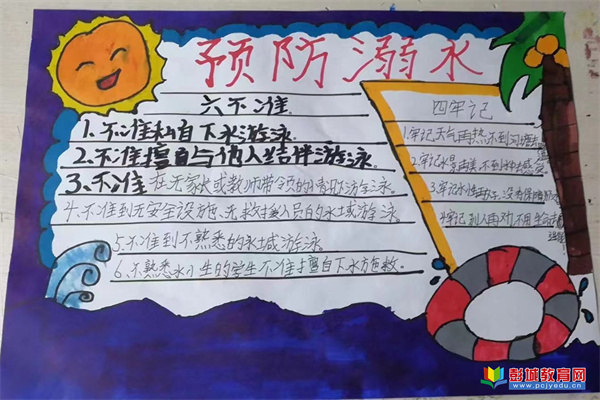 预防溺水
六不准
1、不准私自下水游泳。
2、不准擅自与他人结伴游泳。
3、不准在无家长或教师带领的情况下游泳。
4、不准到无安全设施、无救援人员的水域游泳。
5、不准到不熟悉的水域游泳。
6、不熟悉水性的学生不准擅自下水施救。
四牢记
1牢记天气再热不到河塘
2牢记水景再美,不到
3牢记水性再好,没有
4牢记别人再劝不用生命去
彭城教育网
www.pcjyedu.com